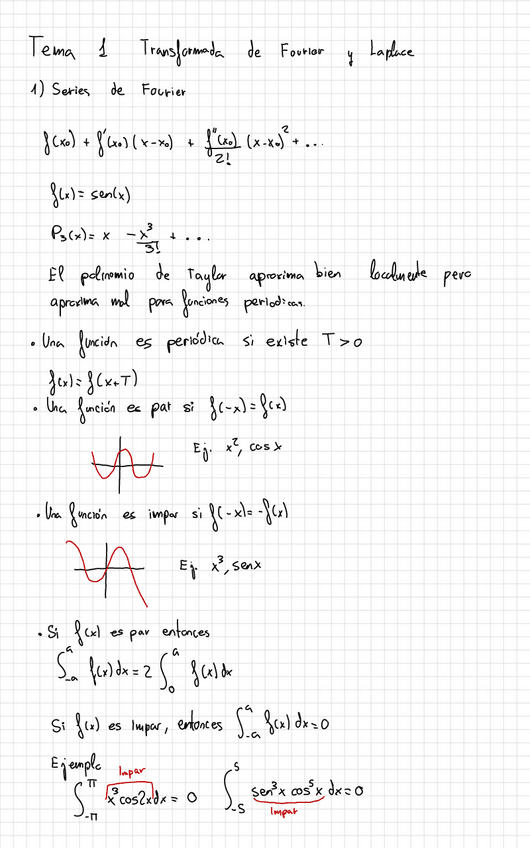 Tema 1 Transformada de Fourier y Laplace
1) Series de Fourier
f(x₀) + f'(x₀)(x-x₀) + f''(x₀)/2! (x-x₀)² + ...
f(x) = sen(x)
P₃(x) = x - x³/3! + ...
El polinomio de Taylor aproxima bien localmente pero
aproxima mal para funciones periodicas.
• Una función es periódica si existe T > 0
f(x) = f(x+T)
• Una función es par si f(-x) = f(x)
Ej. x², cos x
• Una función es impar si f(-x) = -f(x)
Ej. x³, sen x
• Si f(x) es par entonces
∫₋ₐᵃ f(x) dx = 2 ∫₀ᵃ f(x) dx
Si f(x) es Impar, entonces ∫₋ₐᵃ f(x) dx = 0
Ejemplo
Impar
∫_{-π}^{π} x³ cos2x dx = 0 ∫_{-5}^{5} sen³x cos⁵x dx = 0
Impar